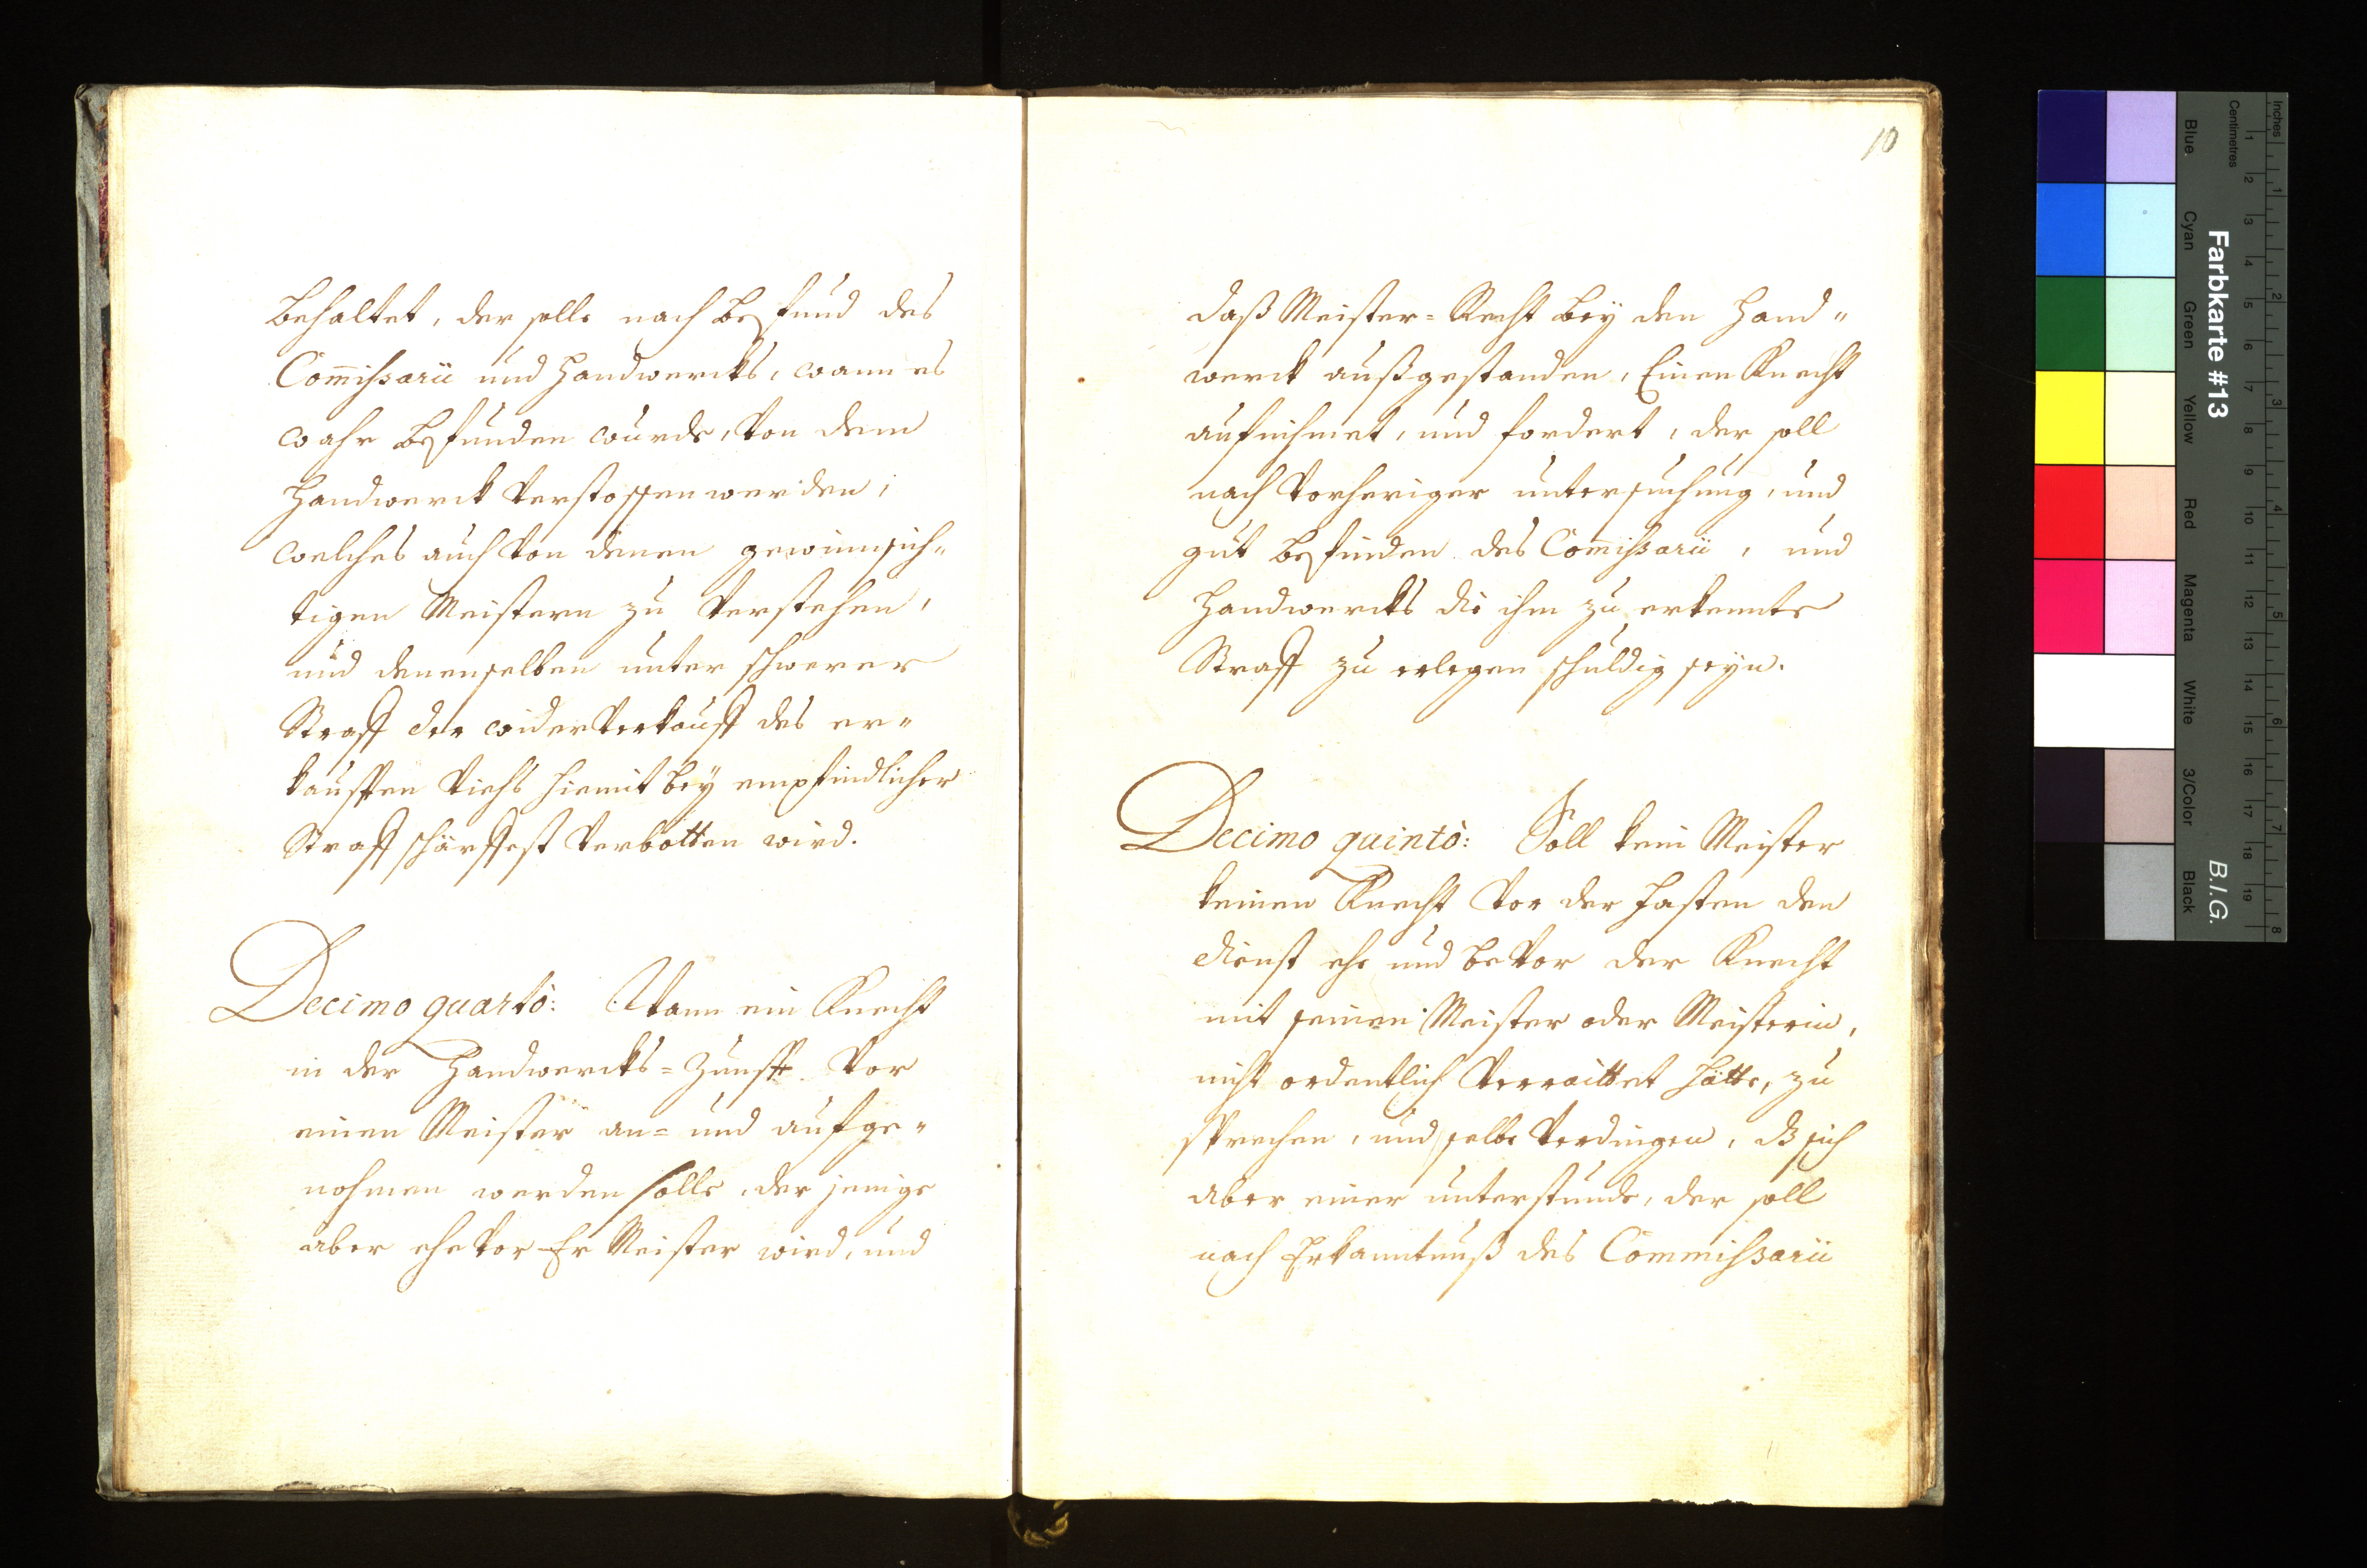 behaltet, der solle nach befund des
Com̅ißarii und Handwercks, wann es
wahr befunden wurde, von dem
Handwerck verstossen werden;
welches auch von denen gewinnsich„
tigen Meistern zu verstehen,
und denenselben unter schwerer
Straff der widerverkauff des er„
kaufften Viehs hiemit bey empfindlicher
Straff schärffest verbotten wird.
Decimo quartò: Wann ein Knecht
in der Handwercks=Zunfft vor
einen Meister an= und aufge„
nohmen werden solle, der jenige
aber ehevor Er Meister wird, und
10
daß Meister=Recht bey den Hand„
werck außgestanden, Einen Knecht
aufnihmet, und fordert, der soll
nach vorheriger untersuchung, und
gut befinden des Com̅ißarii, und
Handwercks die ihm zu erkennte
Straff zu erlegen schuldig seyn.
Decimo quintò: Soll kein Meister
keinen Knecht vor der fasten den
dienst ehe und bevor der Knecht
mit seinen Meister oder Meisterin,
nicht ordentlich verraittet hätte, zu
sprechen, und selbe verdingen, dß sich
aber einer unterstunde, der soll
nach Erkanntnuß des Commißarii
Farbkarte #13
B.I.G.
Inches
Centimetres
1 2 3 4 5 6 7 8
1 2 3 4 5 6 7 8 9 10 11 12 13 14 15 16 17 18 19
Blue Cyan Green Yellow Red Magenta White 3/Color Black